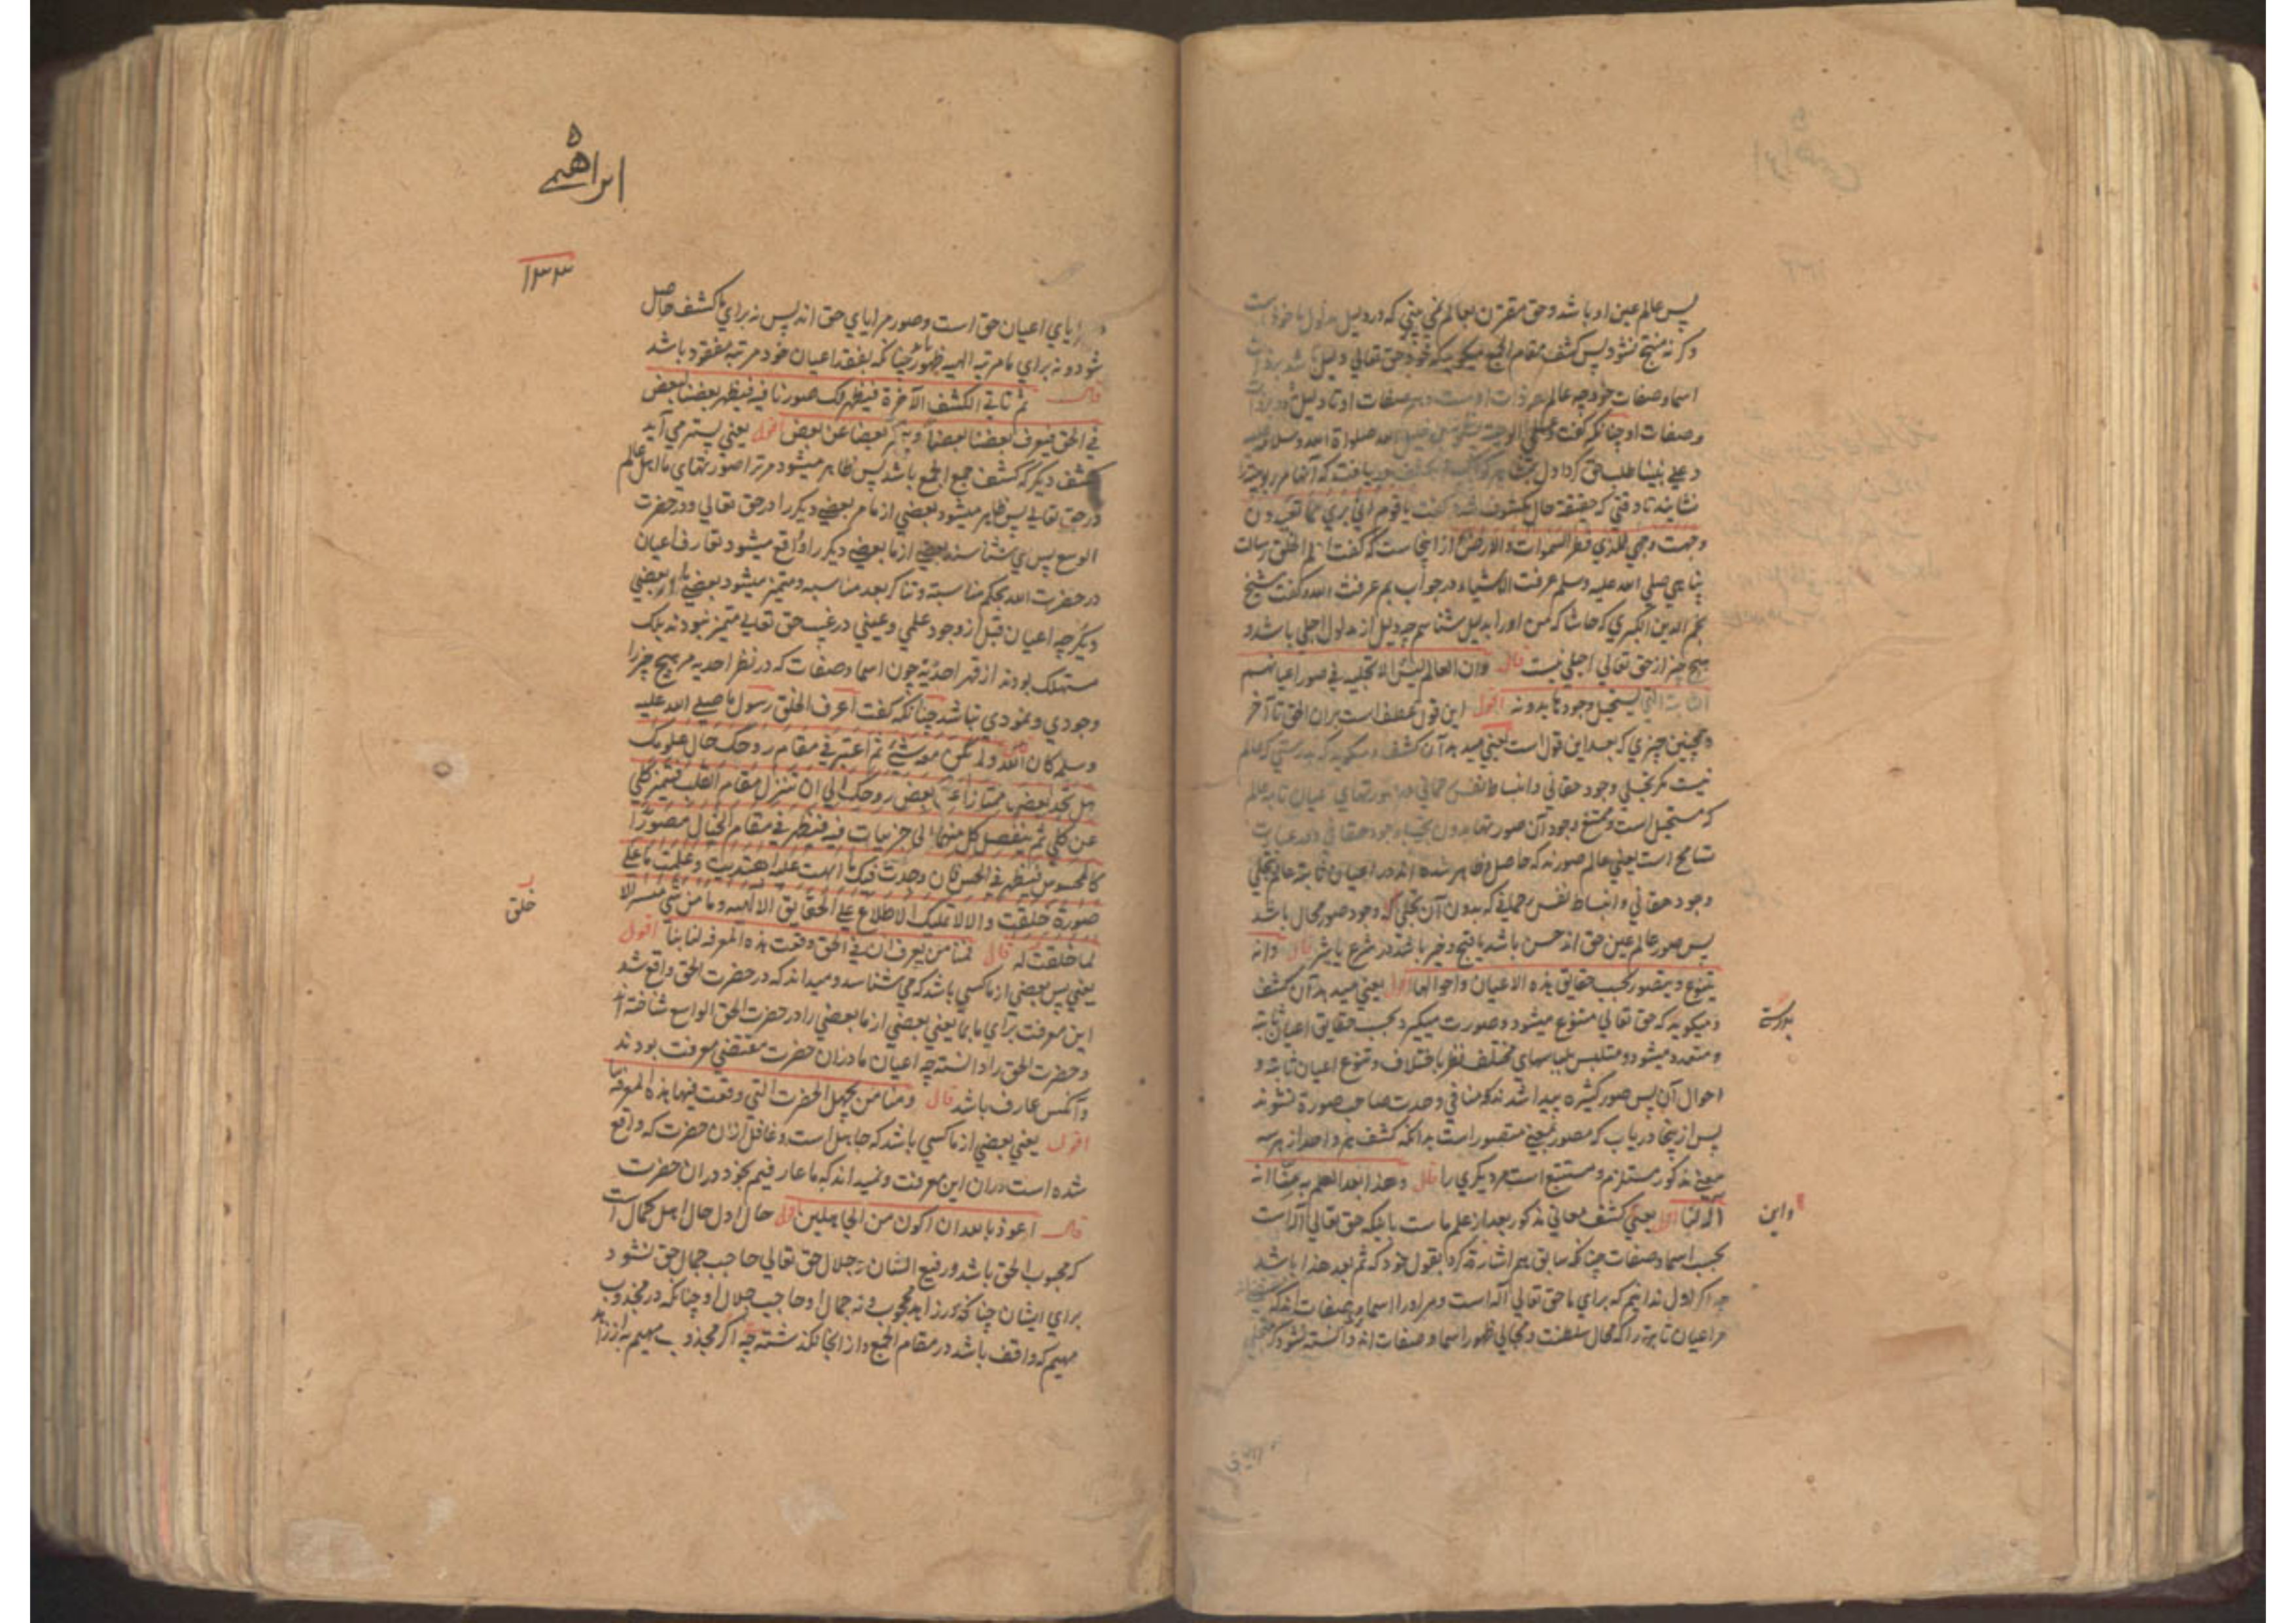 پس عالم عین او باشد و حق مقترن بعالم نمی بینی که در دلیل مدلول ماخوذ است
و کرنه منتج نشود پس کشف مقام الجمع میکوید که خود حق تعالی دلیل باشد بر ذات
اسما و صفات خود چه عالم صفات او تا دلیل شود بر ذات
و صفات او چنانکه کفت صلواة الله و سلامه علیه
و علی نبینا طلب حق کرد اول یافت که آنها مر ربوبیة را
نشایند تا وقتی که حقیقة حال مکشوف شد کفت یا قوم انی بری مما تعبدون
وجهت وجهی للذی فطر السموات والارض از اینجاست که کفت اعلم الخلق رسالت
پناهی صلی الله علیه وسلم عرفت الاشیاء در جواب بم عرفت الله و کفت شیخ
نجم الدین الکبری که حاشا که من او را بدلیل شناسم چه دلیل از مدلول اجلی باشد و
هیچ چیز از حق تعالی اجلی نیست قال وان العالم لیس الا تجلیه فی صور اعیانهم
الثابتة التی یستحیل وجودها بدونه اقول این قول عطف است بران الحق تا آخر
و همچنین چیزی که بعد این قول است یعنی میدهد آن کشف و میکوید که بدرستی که عالم
نیست مکر تجلی وجود حقانی و انبساط نفس رحمانی در صورتهای اعیان ثابته عالم
که مستحیل است و ممتنع وجود آن صورتها بدون تجلی وجود حقانی و در عبارت
تسامح است یعنی عالم صورند که حاصل و ظاهر شده اند در اعیان ثابته عالم بتجلی
وجود حقانی و انبساط نفس رحمانی که بدون آن تجلی که وجود صور محال باشد
پس صور عالم عین حق اند حسن باشد یا قبیح و خیر باشد در شرع یا شر قال وانه
یتنوع و یتصور بحسب حقایق هذه الاعیان و احوالها اقول یعنی میدهد آن کشف
و میکوید که حق تعالی متنوع میشود و صورت میکیرد بحسب حقایق اعیان ثابته
و متعدد میشود و متلبس بلباسهای مختلف نظر باختلاف و تنوع اعیان ثابته و
احوال آن پس صور کثیره پیدا شدند که منافی وحدت صاحب صورة نشوند
پس از ینجا دریاب که مصور بمعنی متصور است بدانکه کشف هر واحد از هر سه
معنی مذکور مستلزم و مستتبع است مر دیکری را قال وهذا بعد العلم به منا انه
اله لنا اقول یعنی کشف معانی مذکور بعد از علم ماست باینکه حق تعالی آله است
بحسب اسما و صفات چنانکه سابق هم اشارة کرد بقول خود که ثم بعد هذا باشد
چه اکر اول ندانیم که برای ما حق تعالی آله است و مر او را اسما و صفات اند که
مر اعیان ثابته را که محال سلطنت و مجالی ظهور اسما و صفات اند دانسته نشود که
بدرستی
و این
ابراهیمی
۱۳۳
مرایای اعیان حق است و صور مرایای حق اند پس نه برای ما کشف حاصل
شود و نه برای ما مرتبه الهیه ظهور چنانکه بفقد اعیان خود مرتبه مفقود باشد
قال ثم تاتی الکشف الآخرة فیظهر لک صورنا فیه فیظهر بعضنا لبعض
فی الحق فیعرف بعضنا بعضا و یتمیز بعضنا عن بعض اقول یعنی پستر می آید
کشف دیکر که کشف جمع الجمع باشد پس ظاهر میشود مر ترا صورتهای ما اهل عالم
در حق تعالی پس ظاهر میشود بعضی از ما مر بعضی دیکر را در حق تعالی و در حضرت
الوسع پس می شناسند بعضی از ما بعضی دیکر را و واقع میشود تعارف اعیان
در حضرت الله بحکم مناسبة و تناکر بعدم مناسبه و متمیز میشود بعضی از بعضی
دیکر چه اعیان قبل از وجود علمی و عینی در غیب حق تعالی متمیز نبودند بلک
مستهلک بودند از قهر احدیه چون اسما و صفات که در نظر احدیه مر هیچ چیز را
وجودی و نمودی نباشد چنانکه کفت اعرف الخلق رسول ما صلی الله علیه
وسلم کان الله ولم یکن معه شیء ثم اعتبر فی مقام روحک حال علومک
هل تجد بعض ممتازا عن بعض روحک الی ان تتنزل مقام القلب فیتمیز کلی
عن کلی ثم ینفصل کل منهما الی جزییات فیه فیظهر فی مقام الخیال مصورا
کالمحسوس فیظهر فی الحس فان وجدت فیک ما انبهت علیه اهتدیت و علمت ما علی
صورة خلقت و الا لا علیک الاطلاع علی الحقایق الالهیه و ما من شی میسر الا
لما خلقت له قال فمنا من یعرف ان فی الحق وقعت هذه المعرفه لنا بنا اقول
یعنی پس بعضی از ما کسی باشد که می شناسد و میداند که در حضرت الحق واقع شد
این معرفت برای ما بما یعنی بعضی از ما بعضی را در حضرت الحق الواسع شناخته اند
و حضرت الحق را دانسته چه اعیان ما دران حضرت مقتضی معرفت بودند
و آنکس عارف باشد قال و منا من یجهل الحضرت التی وقعت فیها هذه المعرفة بنا
اقول یعنی بعضی از ما کسی باشد که جاهل است و غافل ازان حضرت که واقع
شده است دران این معرفت و نمیداند که ما عارفیم بخود دران حضرت
قال اعوذ بالله ان اکون من الجاهلین اقول حال اول حال اهل کمال است
که محبوب الحق باشد و رفیع الشان نه جلال حق تعالی حاجب جمال حق نشود
برای ایشان چنانکه در زاهد محجوب و نه جمال او حاجب جلال او چنانکه در مجذوب
مهیم که واقف باشد در مقام الجمع و از انجا نکذشته چه اکر مجذوب مهیم نه از زاهد
خلق